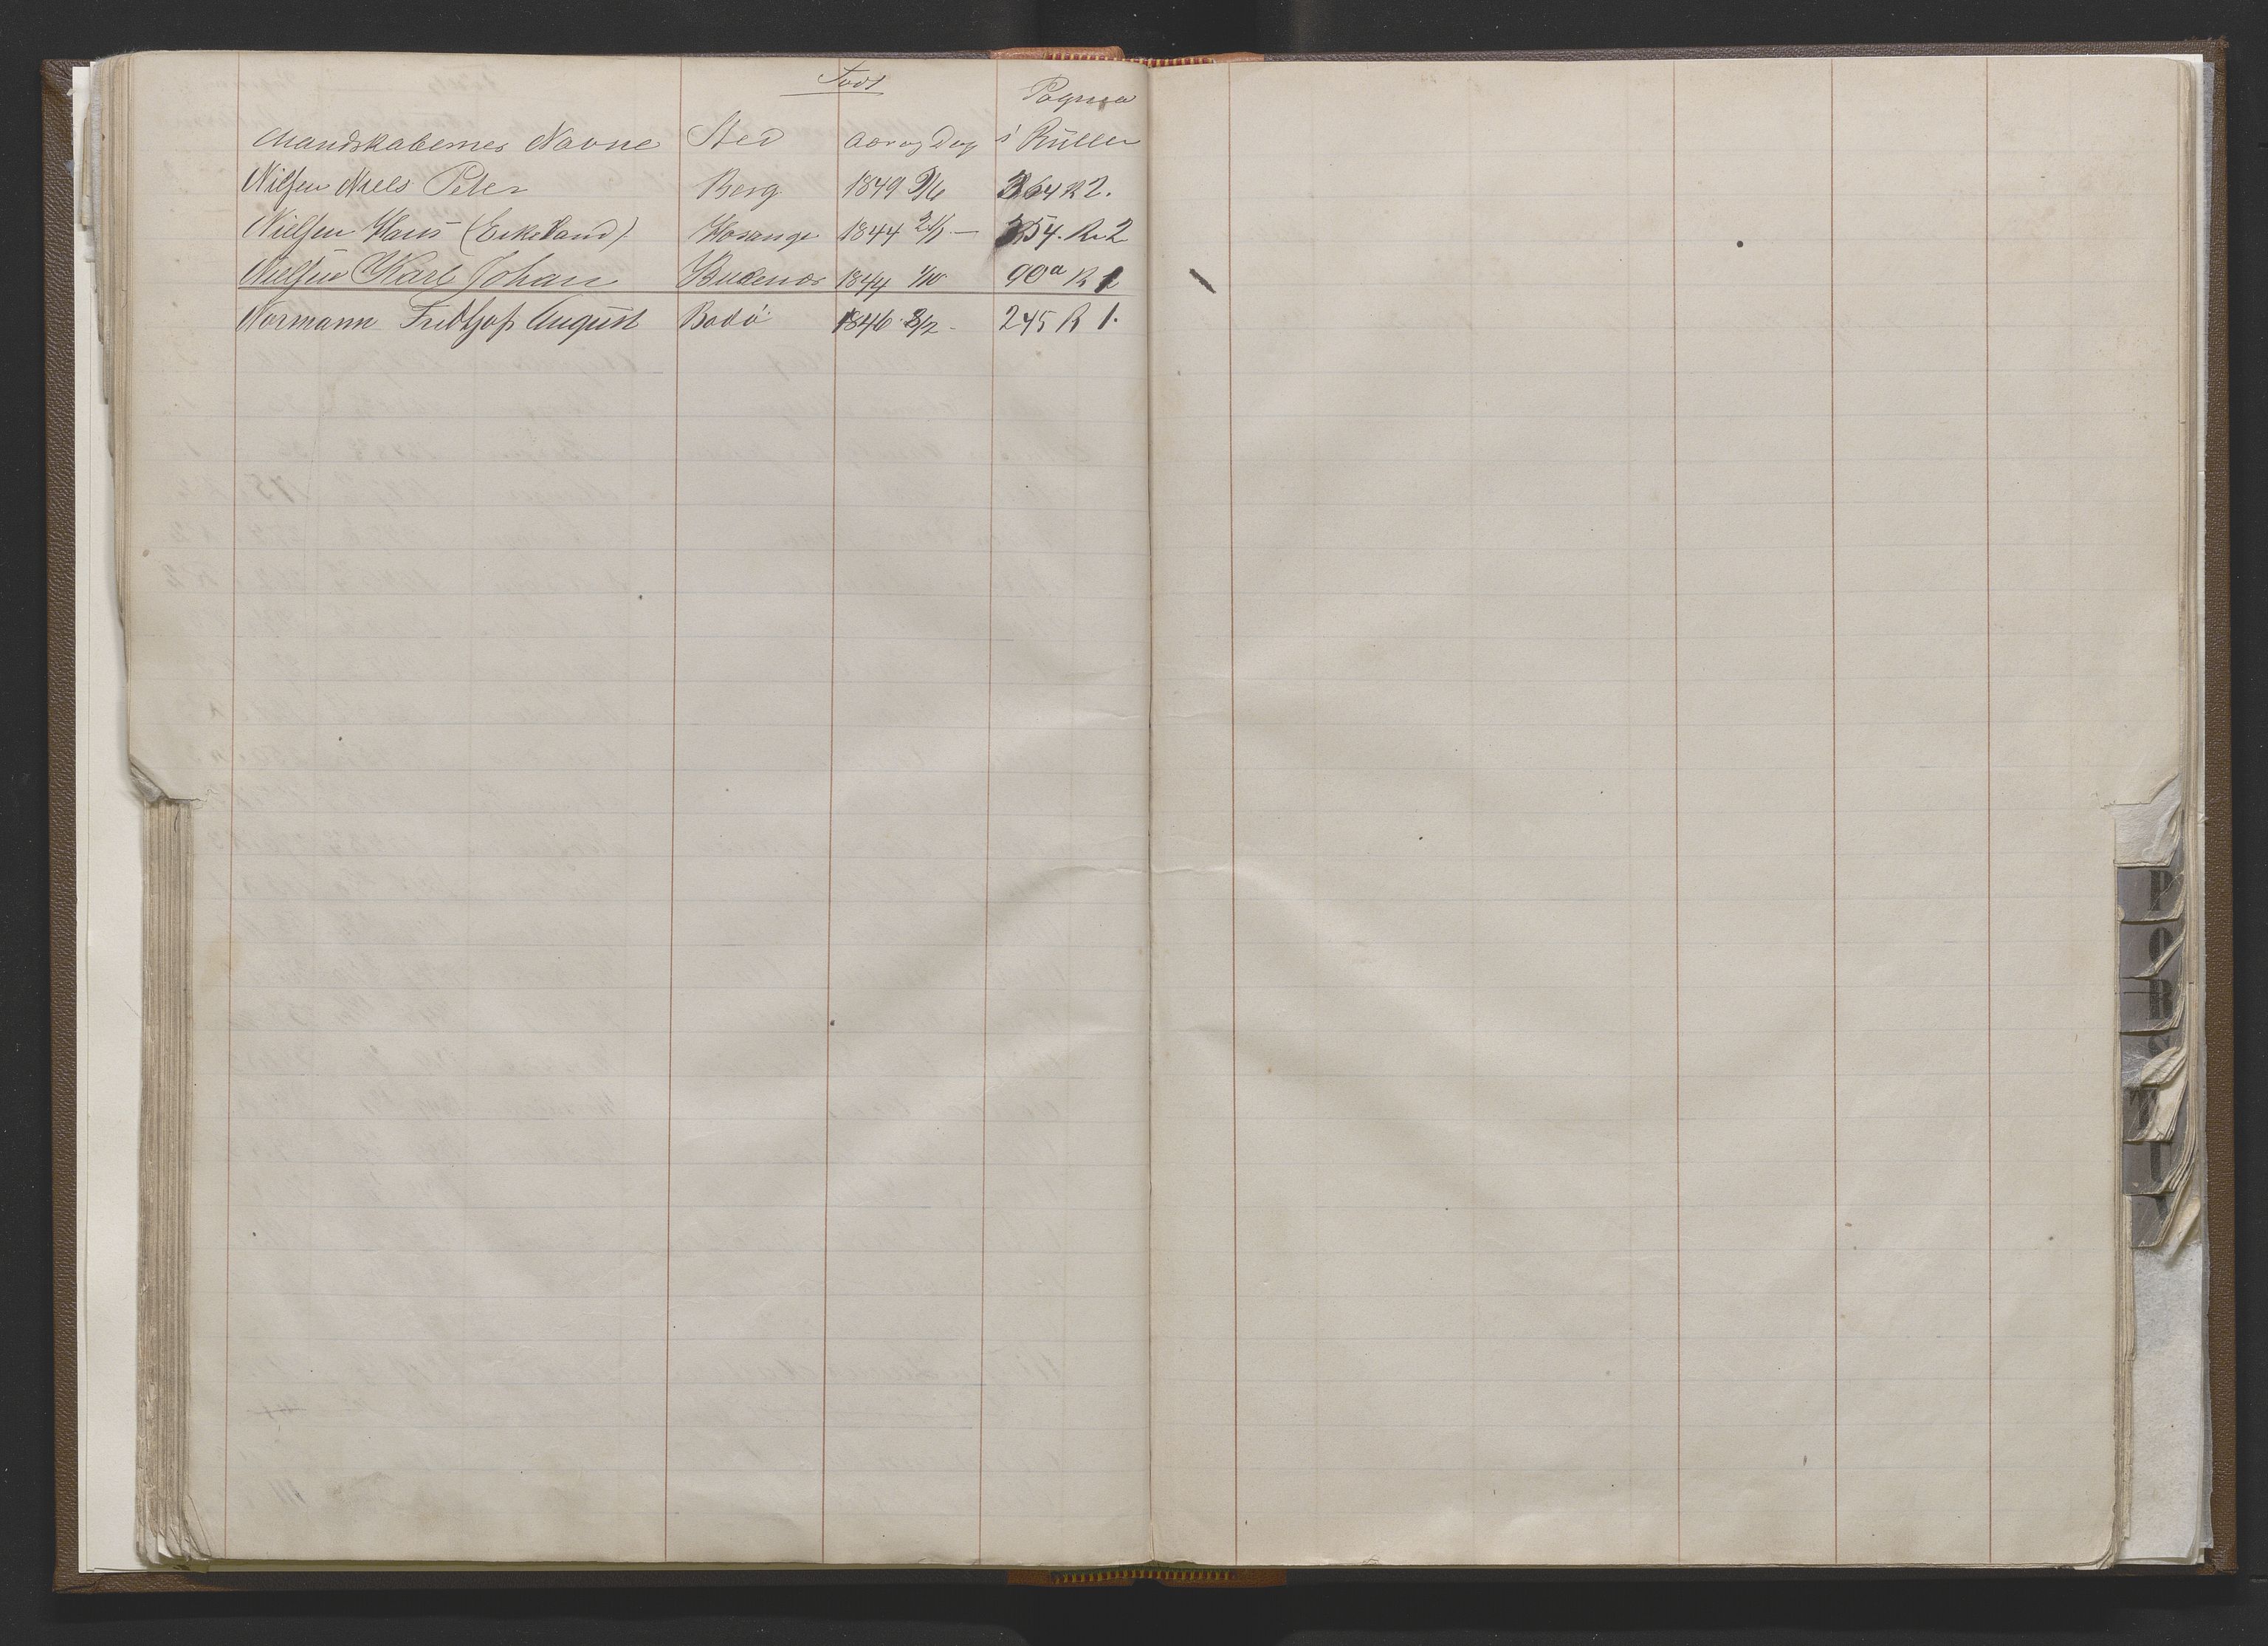 Født
Pagina
Mandskabernes Navne Sted Aar og Dag i Rullen
Nilsen Niels Peter Berg 1849 9/6 364 R 2.
Nielsen Hans (Eikeland) Hosanger 1844 21/1 - 354. R. 2
Nielsen Karl Johan Budenæs 1844 1/10 90a R 1
Normann Fridtjof August Bodö 1846 3/12 - 245 R 1.
P
Q
R
S
T
U
V